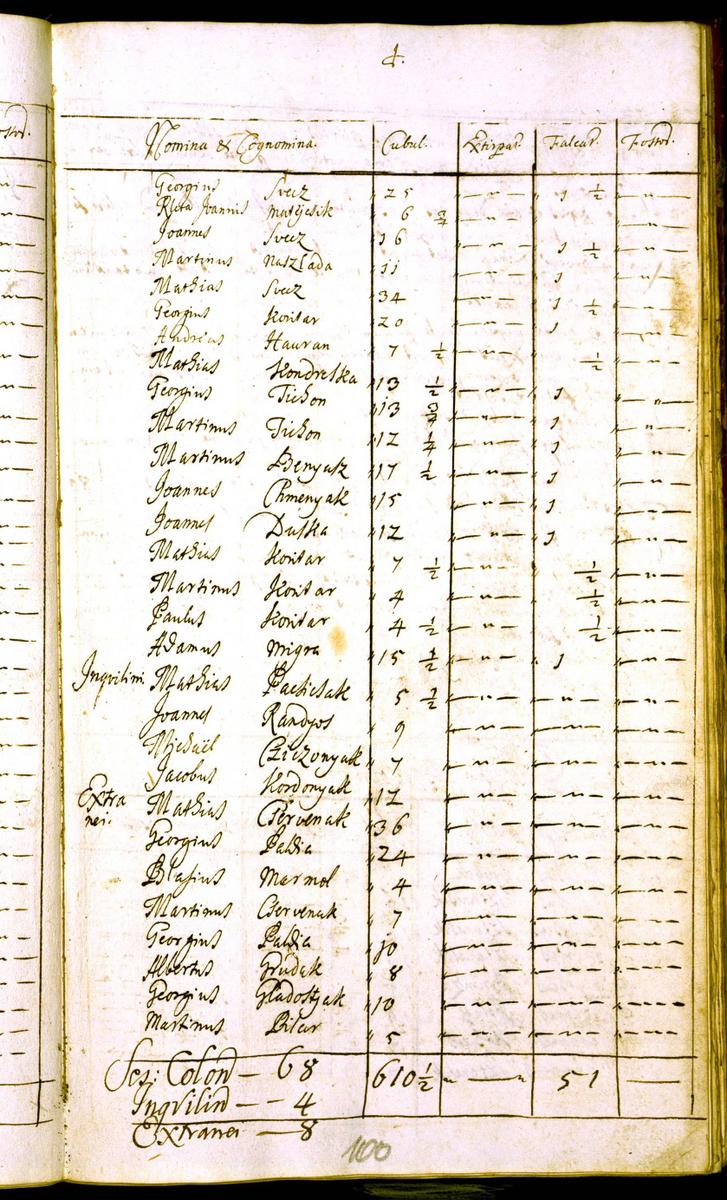 4.
Nomina & Cognomina. Cubul. Extirpat. Falcat.
Georgius Svecz 25 — 1 1/2 —
Joannis Matejcsik 6 3/4 —
Joannes Svecz 16 — 1 1/2 —
Martinus Naszlada 11 — 1 —
Mathias Svecz 34 — 1 1/2 —
Georgius Kontar 20 — 1 —
Andreas Hauran 7 1/2 — 1/2
Mathias Kondrelka 13 1/2 — 1 —
Georgius Tichon 13 3/4 — 1 —
Martinus Tichon 12 1/4 — 1 —
Martinus Benyacz 17 1/2 — 1 —
Joannes Chmenyak 15 — 1 —
Joannes Duska 12 — 1 —
Mathias Kontar 7 1/2 — 1/2 —
Martinus Kontar 4 — 1/2 —
Paulus Kontar 4 1/2 — 1/2 —
Adamus Migra 15 1/2 — 1 —
Inqvilini. Mathias 5 1/2 — — —
Joannes Randyos 9 — — —
Michaël Cziczonyak 7 — — —
Jacobus Kordonyak 12 — — —
Extra
nei: Mathias Cservenak 36 — — —
Georgius Paldia 24 — — —
Blasius Marmol 4 — — —
Martinus Cservenak 7 — — —
Georgius Paldia 10 — — —
Albertus Grudak 8 — — —
Georgius Gladostjak 10 — — —
Martinus Pilar 5 — — —
Ses: Colon — 68 610 1/2 — 51 —
Inqvilin — — 4
Extranei — 8
100